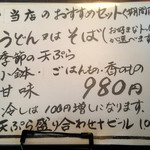 当店のおすすめセット(期間
うどん又は そば(お好きな
が選べます
季節の天ぷら
小鉢・ごはんもの・香のもの
甘味 980円
冷しは100円増しになります。
天ぷら盛り合わせ+ビール 10